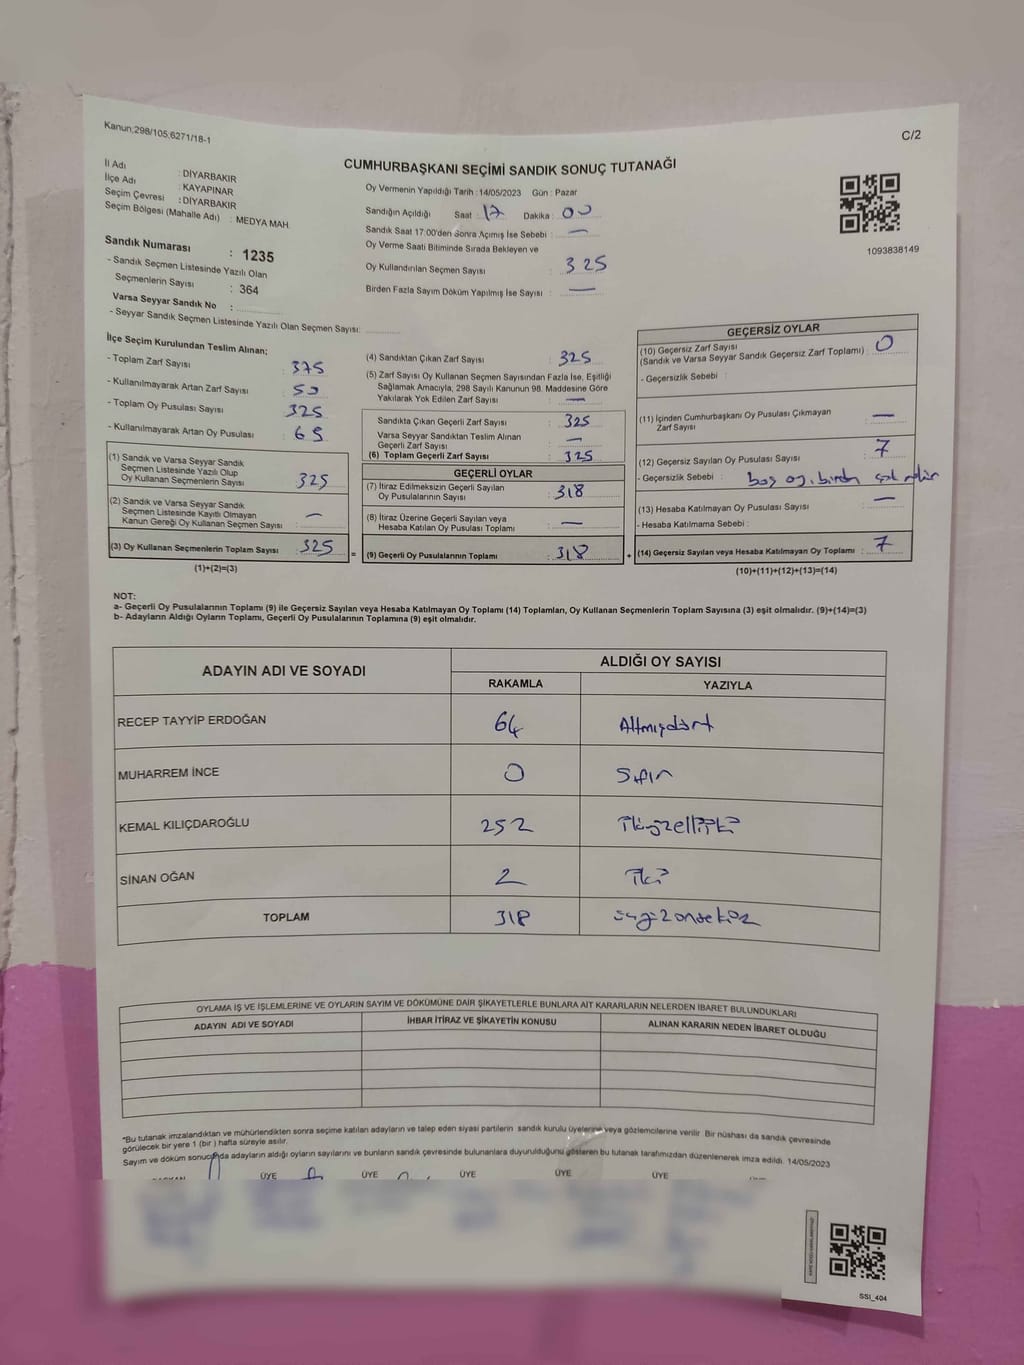 Kanun,298/105,6271/18-1
C/2
CUMHURBAŞKANI SEÇİMİ SANDIK SONUÇ TUTANAĞI
İl Adı : DİYARBAKIR
İlçe Adı : KAYAPINAR
Seçim Çevresi : DİYARBAKIR
Seçim Bölgesi (Mahalle Adı) : MEDYA MAH.
Sandık Numarası : 1235
- Sandık Seçmen Listesinde Yazılı Olan
Seçmenlerin Sayısı : 364
Varsa Seyyar Sandık No :
- Seyyar Sandık Seçmen Listesinde Yazılı Olan Seçmen Sayısı:
Oy Vermenin Yapıldığı Tarih : 14/05/2023 Gün : Pazar
Sandığın Açıldığı Saat : 17 Dakika : 00
Sandık Saat 17:00'den Sonra Açımış İse Sebebi : —
Oy Verme Saati Bitiminde Sırada Bekleyen ve
Oy Kullandırılan Seçmen Sayısı : 325
Birden Fazla Sayım Döküm Yapılmış İse Sayısı : —
1093838149
İlçe Seçim Kurulundan Teslim Alınan;
- Toplam Zarf Sayısı : 375
- Kullanılmayarak Artan Zarf Sayısı : 50
- Toplam Oy Pusulası Sayısı : 325
- Kullanılmayarak Artan Oy Pusulası : 65
(1) Sandık ve Varsa Seyyar Sandık
Seçmen Listesinde Yazılı Olup
Oy Kullanan Seçmenlerin Sayısı : 325
(2) Sandık ve Varsa Seyyar Sandık
Seçmen Listesinde Kayıtlı Olmayan
Kanun Gereği Oy Kullanan Seçmen Sayısı : —
(3) Oy Kullanan Seçmenlerin Toplam Sayısı : 325 =
(1)+(2)=(3)
(4) Sandıktan Çıkan Zarf Sayısı : 325
(5) Zarf Sayısı Oy Kullanan Seçmen Sayısından Fazla İse, Eşitliği
Sağlamak Amacıyla, 298 Sayılı Kanunun 98. Maddesine Göre
Yakılarak Yok Edilen Zarf Sayısı : —
Sandıkta Çıkan Geçerli Zarf Sayısı : 325
Varsa Seyyar Sandıktan Teslim Alınan
Geçerli Zarf Sayısı : —
(6) Toplam Geçerli Zarf Sayısı : 325
GEÇERLİ OYLAR
(7) İtiraz Edilmeksizin Geçerli Sayılan
Oy Pusulalarının Sayısı : 318
(8) İtiraz Üzerine Geçerli Sayılan veya
Hesaba Katılan Oy Pusulası Toplamı : —
(9) Geçerli Oy Pusulalarının Toplamı : 318 +
GEÇERSİZ OYLAR
(10) Geçersiz Zarf Sayısı : 0
(Sandık ve Varsa Seyyar Sandık Geçersiz Zarf Toplamı)
- Geçersizlik Sebebi :
(11) İçinden Cumhurbaşkanı Oy Pusulası Çıkmayan
Zarf Sayısı : —
(12) Geçersiz Sayılan Oy Pusulası Sayısı : 7
- Geçersizlik Sebebi : boş oy, birden çok
(13) Hesaba Katılmayan Oy Pusulası Sayısı : —
- Hesaba Katılmama Sebebi :
(14) Geçersiz Sayılan veya Hesaba Katılmayan Oy Toplamı : 7
(10)+(11)+(12)+(13)=(14)
NOT:
a- Geçerli Oy Pusulalarının Toplamı (9) ile Geçersiz Sayılan veya Hesaba Katılmayan Oy Toplamı (14) Toplamları, Oy Kullanan Seçmenlerin Toplam Sayısına (3) eşit olmalıdır. (9)+(14)=(3)
b- Adayların Aldığı Oyların Toplamı, Geçerli Oy Pusulalarının Toplamına (9) eşit olmalıdır.
ADAYIN ADI VE SOYADI
ALDIĞI OY SAYISI
RAKAMLA YAZIYLA
RECEP TAYYİP ERDOĞAN 64 Altmışdört
MUHARREM İNCE 0 Sıfır
KEMAL KILIÇDAROĞLU 252 ikiyüzelliiki
SİNAN OĞAN 2 iki
TOPLAM 318 üçyüzonsekiz
OYLAMA İŞ VE İŞLEMLERİNE VE OYLARIN SAYIM VE DÖKÜMÜNE DAİR ŞİKAYETLERLE BUNLARA AİT KARARLARIN NELERDEN İBARET BULUNDUKLARI
ADAYIN ADI VE SOYADI İHBAR İTİRAZ VE ŞİKAYETİN KONUSU ALINAN KARARIN NEDEN İBARET OLDUĞU
*Bu tutanak imzalandıktan ve mühürlendikten sonra seçime katılan adayların ve talep eden siyasi partilerin sandık kurulu üyelerine veya gözlemcilerine verilir. Bir nüshası da sandık çevresinde
görülecek bir yere 1 (bir) hafta süreyle asılır.
Sayım ve döküm sonucunda adayların aldığı oyların sayılarını ve bunların sandık çevresinde bulunanlara duyurulduğunu gösteren bu tutanak tarafımızdan düzenlenerek imza edildi. 14/05/2023
ÜYE ÜYE ÜYE ÜYE ÜYE
SSI_404